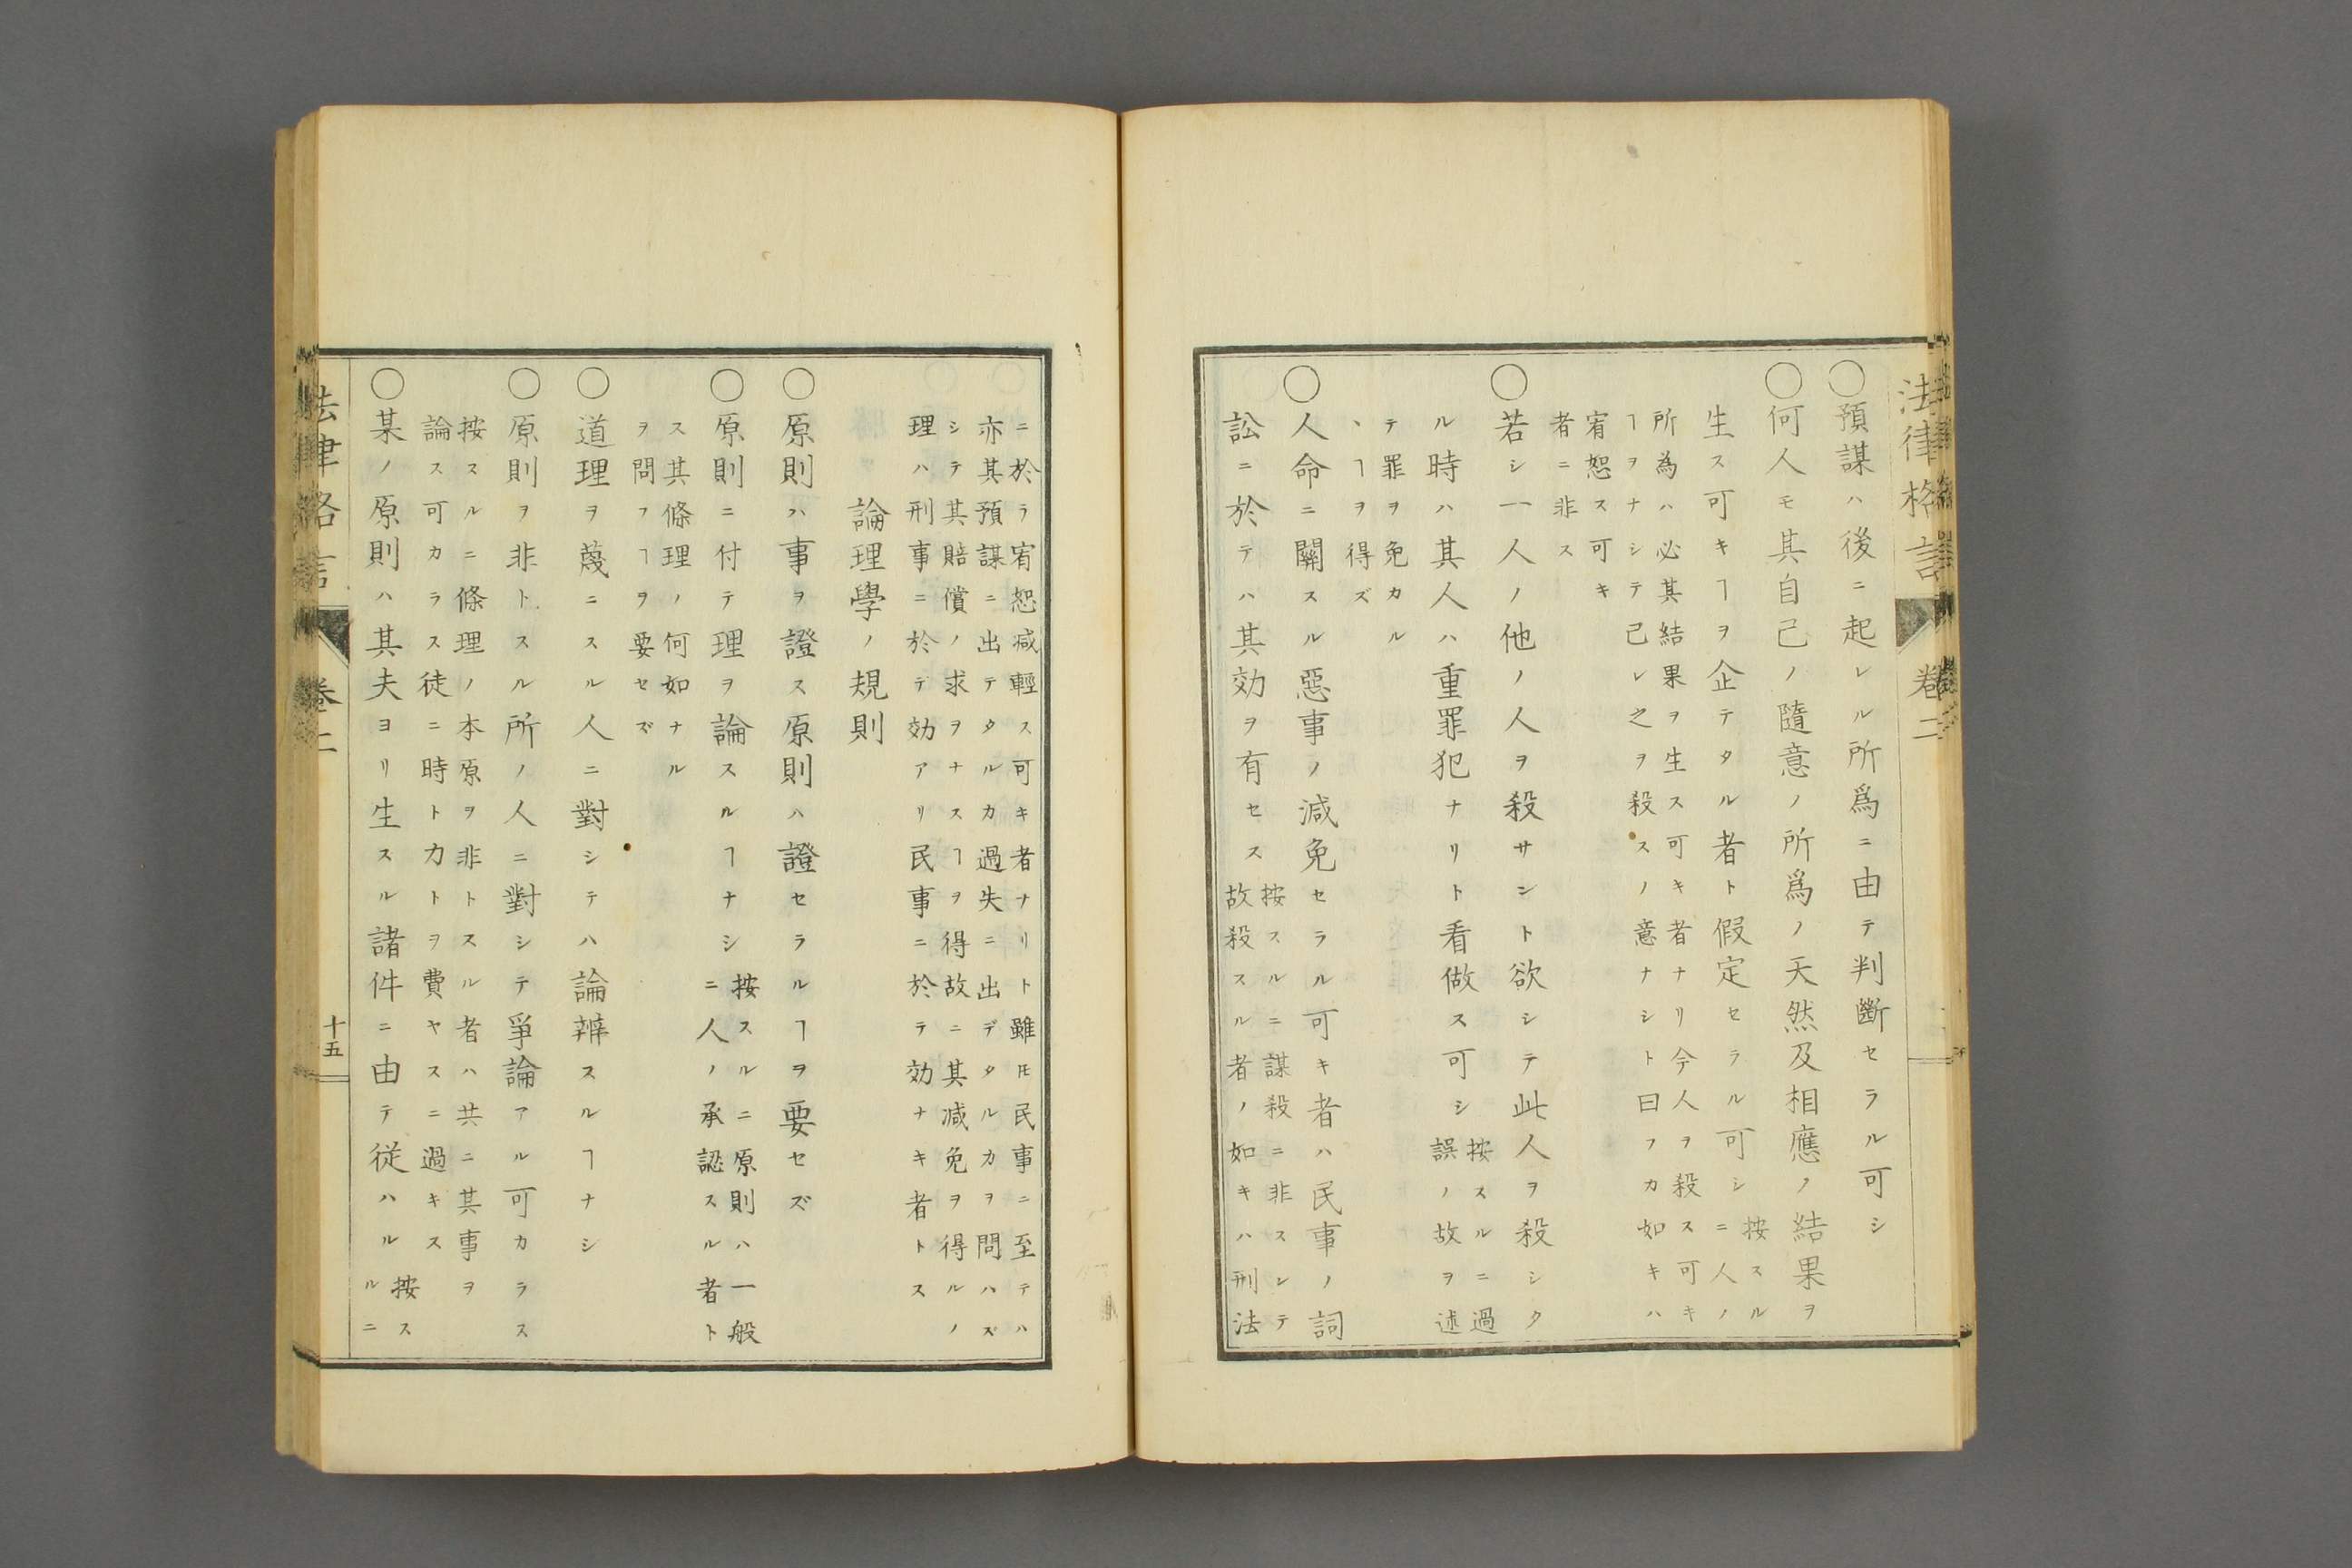 法律格言 巻二
○預謀ハ後ニ起レル所爲ニ由テ判斷セラル可シ
○何人モ其自己ノ隨意ノ所爲ノ天然及相應ノ結果ヲ
生ス可キヿヲ企テタル者ト假定セラル可シ 按スル
ニ人ノ
所為ハ必其結果ヲ生ス可キ者ナリ今人ヲ殺ス可キ
ヿヲナシテ己レ之ヲ殺スノ意ナシト曰フカ如キハ
宥恕ス可キ
者ニ非ス
○若シ一人ノ他ノ人ヲ殺サント欲シテ此人ヲ殺シタ
ル時ハ其人ハ重罪犯ナリト看做ス可シ 按スルニ過
誤ノ故ヲ述
テ罪ヲ免カル
丶ヿヲ得ズ
○人命ニ關スル惡事ノ減免セラル可キ者ハ民事ノ詞
訟ニ於テハ其効ヲ有セス 按スルニ謀殺ニ非スシテ
故殺スル者ノ如キハ刑法
ニ於テ宥恕減輕ス可キ者ナリト雖𪜈民事ニ至テハ
亦其預謀ニ出テタルカ過失ニ出デタルカヲ問ハズ
シテ其賠償ノ求ヲナスヿヲ得故ニ其減免ヲ得ルノ
理ハ刑事ニ於テ効アリ民事ニ於テ効ナキ者トス
論理學ノ規則
○原則ハ事ヲ證ス原則ハ證セラルヿヲ要セズ
○原則ニ付テ理ヲ論スルヿナシ 按スルニ原則ハ一般
ニ人ノ承認スル者ト
ス其條理ノ何如ナル
ヲ問フヿヲ要セズ
○道理ヲ蔑ニスル人ニ對シテハ論辨スルヿナシ
○原則ヲ非トスル所ノ人ニ對シテ爭論アル可カラス
按スルニ條理ノ本原ヲ非トスル者ハ共ニ其事ヲ
論ス可カラス徒ニ時ト力トヲ費ヤスニ過キス
○某ノ原則ハ其夫ヨリ生スル諸件ニ由テ従ハル 按ス
ルニ
法律格言 巻二 十五